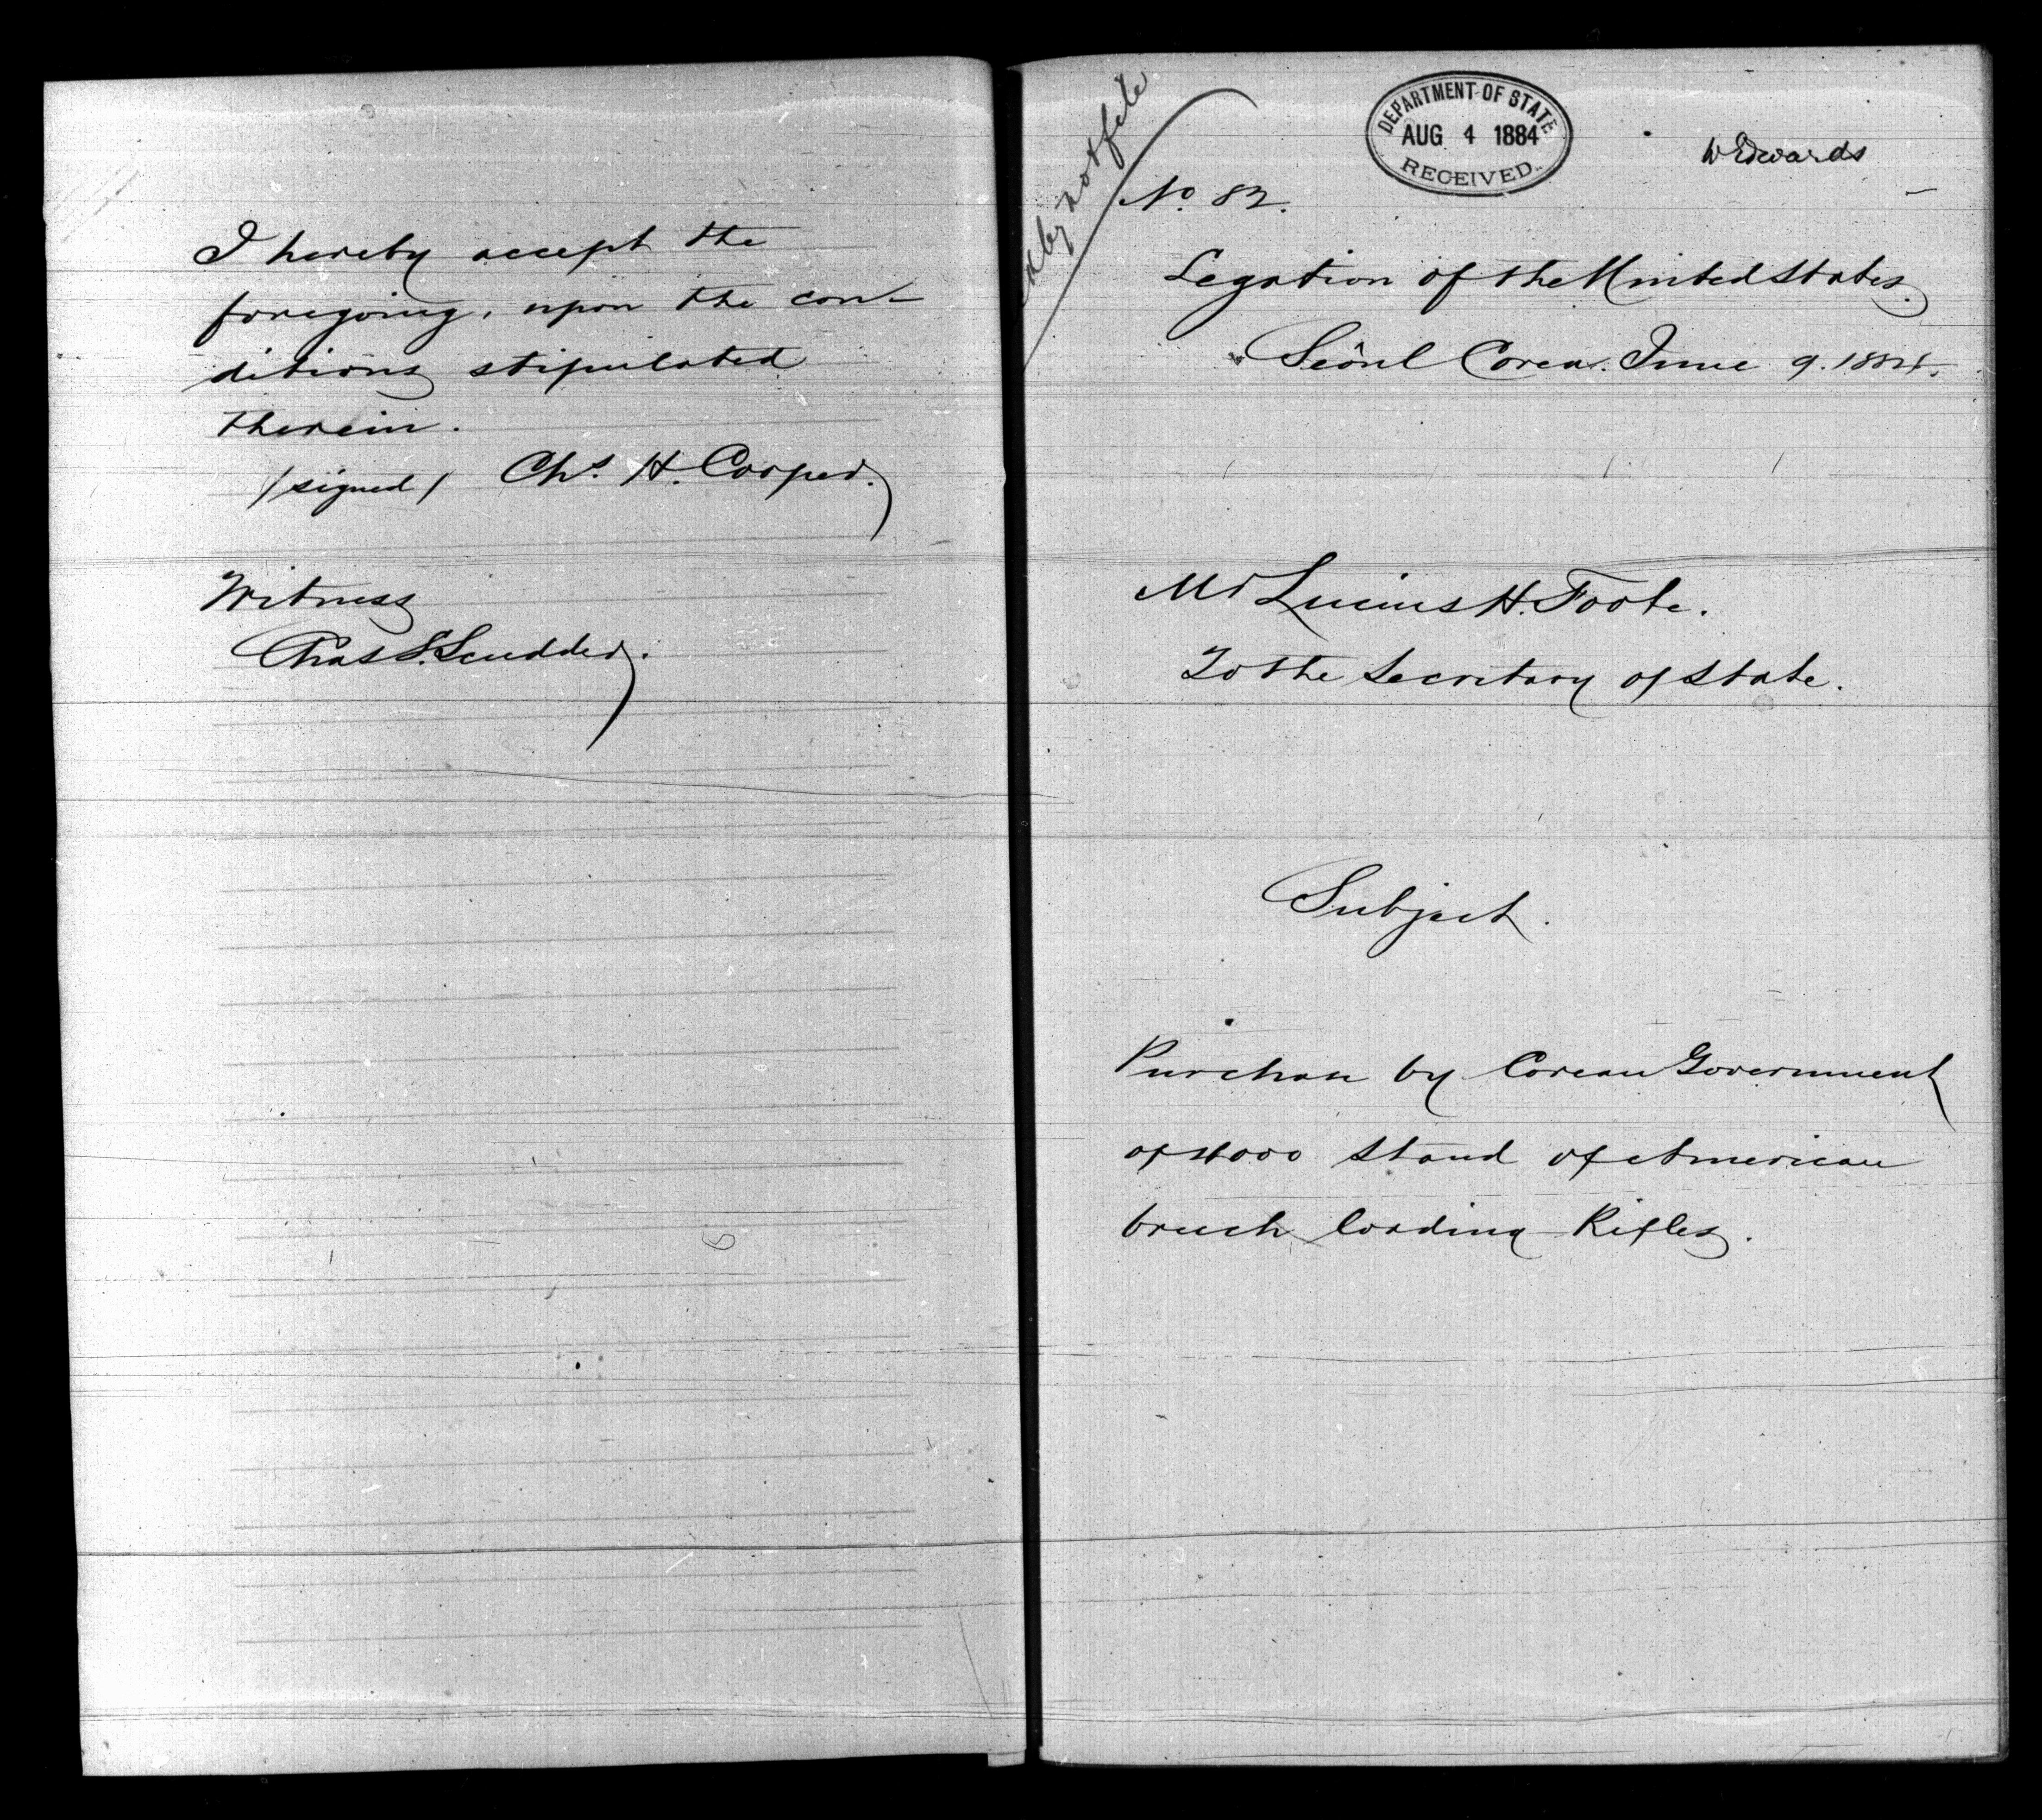 I hereby accept the
foregoing, upon the con-
ditions stipulated
therein.
/signed/ Chs. H. Cooper.
Witness
Chas S. Scudder.
DEPARTMENT OF STATE
AUG 4 1884
RECEIVED.
W Edwards
No. 82.
Legation of the United States.
Seoul Corea. June 9. 1884.
Mr Lucius H. Foote.
To the Secretary of State.
Subject.
Purchase by Corean Government
of 4000 stand of American
breech loading Rifles.